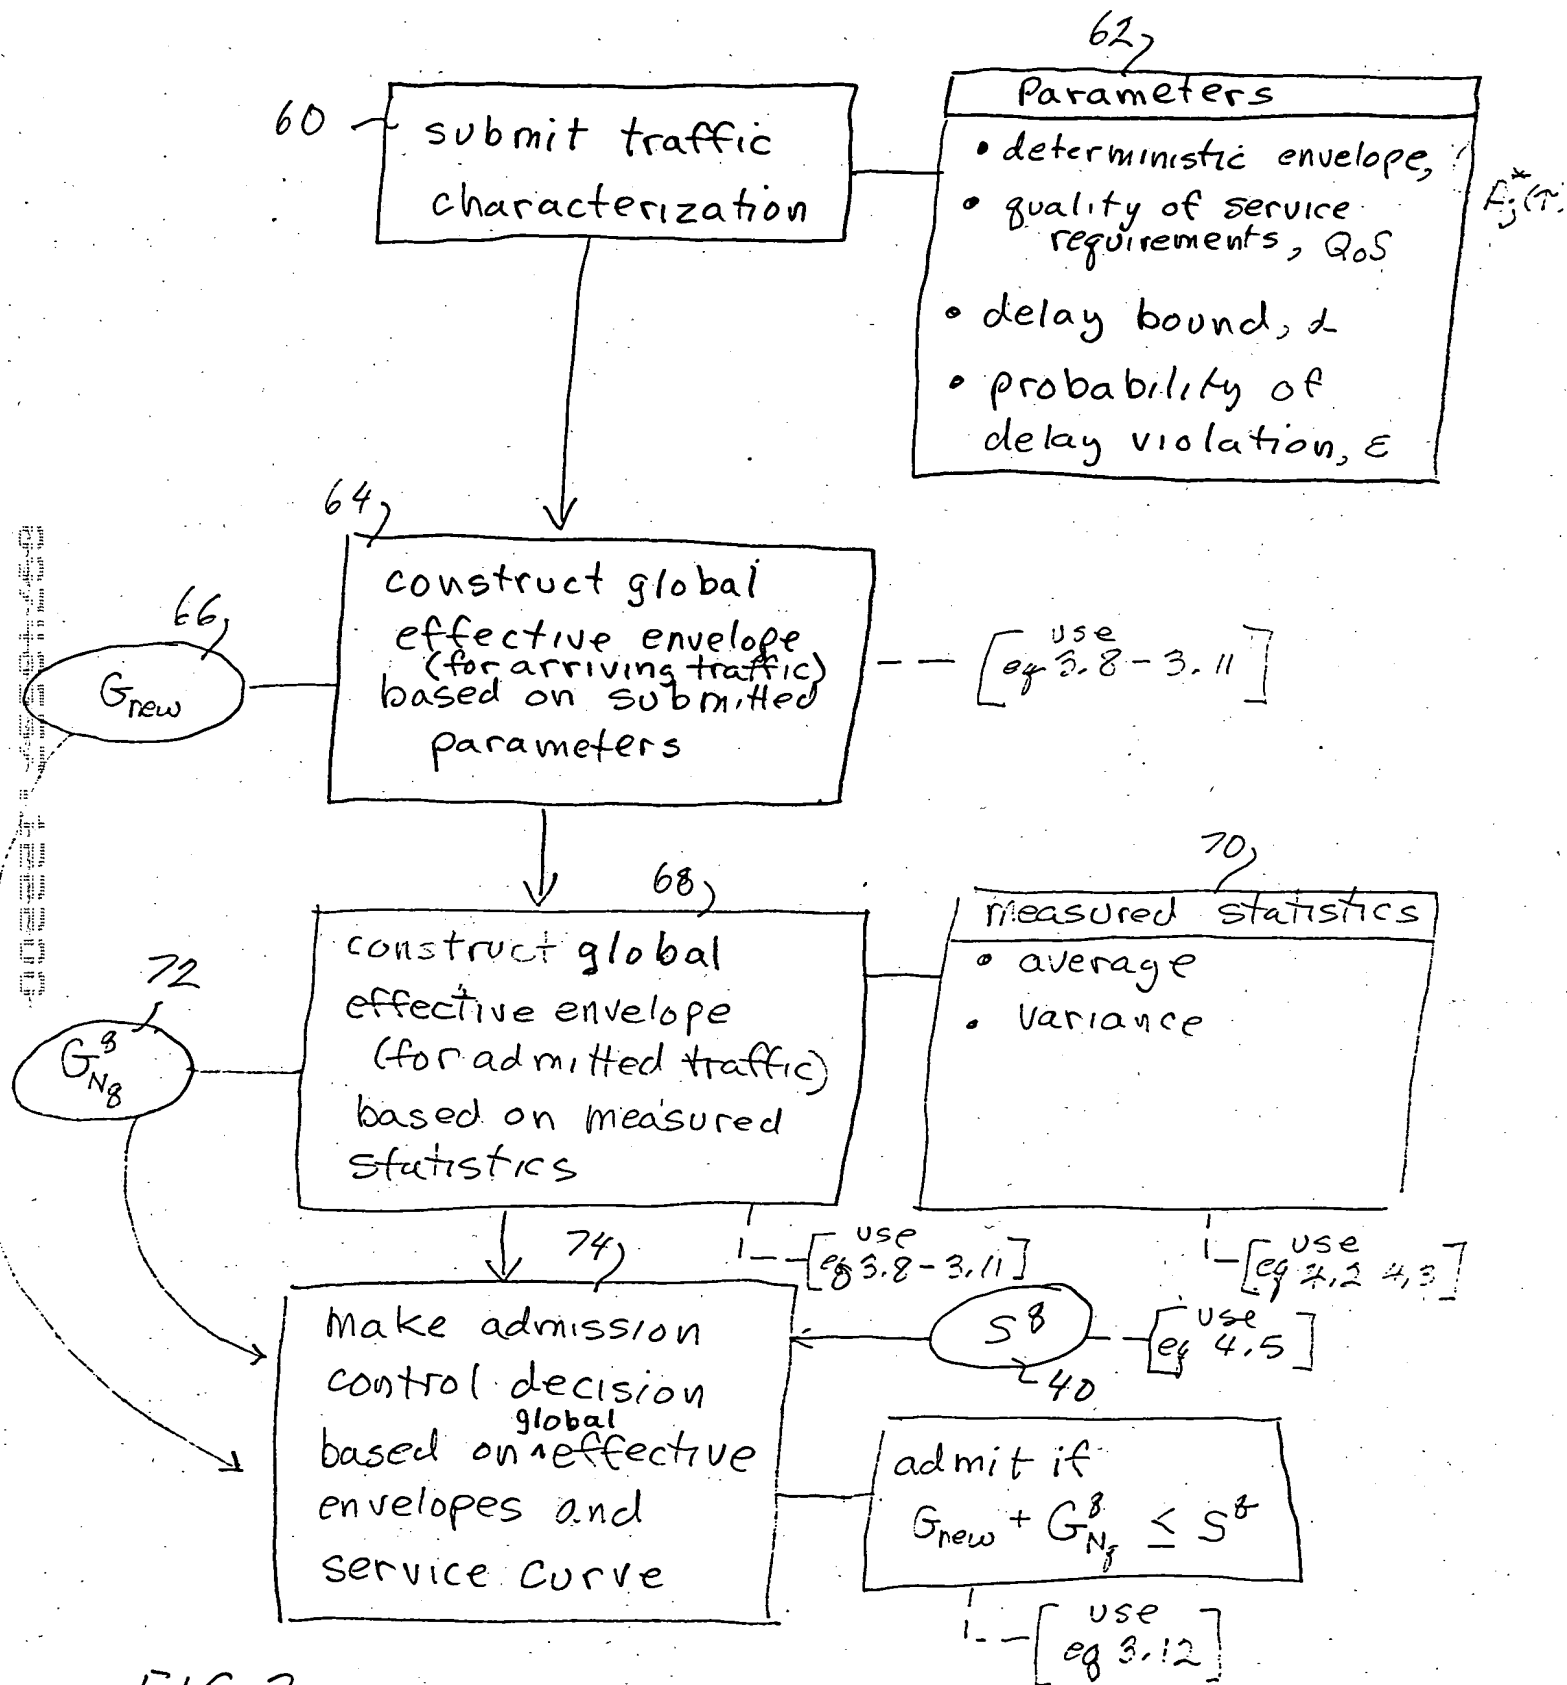 62
Parameters
• deterministic envelope,
A*j(τ
• quality of service
requirements, QoS
• delay bound, d
• probability of
delay violation, ε
60
submit traffic
characterization
64
construct global
effective envelope
(for arriving traffic)
based on submitted
parameters
66
Gnew
[use
eq 3.8 - 3.11]
68
construct global
effective envelope
(for admitted traffic)
based on measured
statistics
70
measured statistics
• average
• variance
72
G^g_Ng
[use
eq 3.8 - 3.11]
[use
eq 4.2 4.3]
74
make admission
control decision
global
based on ^ effective
envelopes and
service curve
S^g
40
[use
eq 4.5]
admit if
Gnew + G^g_Ng ≤ S^g
[use
eq 3.12]